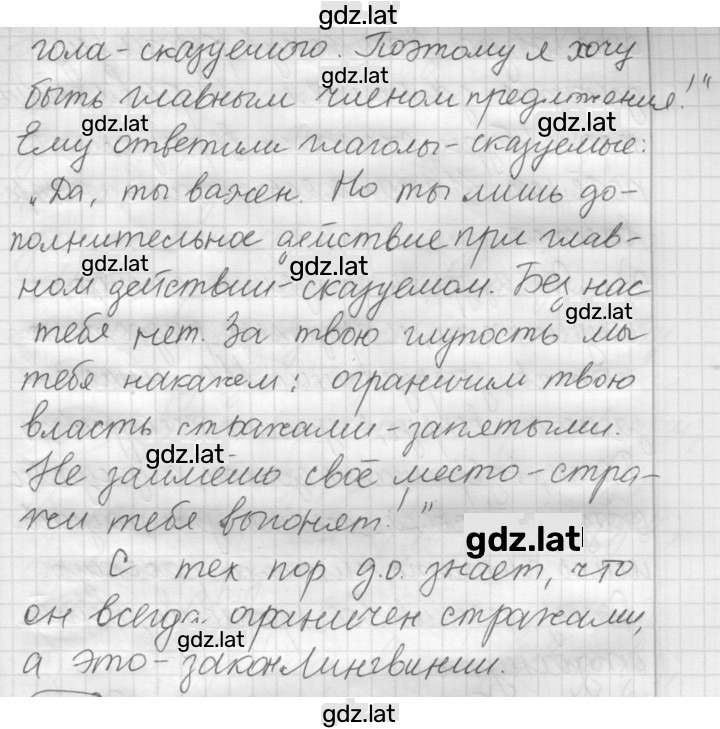 gdz.lat
гола-сказуемого. Поэтому я хочу
gdz.lat
быть главным членом предложения!"
gdz.lat gdz.lat
Ему ответили глаголы-сказуемые:
gdz.lat
„Да, ты важен. Но ты лишь до-
полнительное действие при глав-
gdz.lat gdz.lat
ном действии-сказуемом. Без нас
gdz.lat
тебя нет. За твою глупость мы
тебя накажем: ограничим твою
власть стражами-запятыми.
gdz.lat
Не займёшь своё место-стра-
жи тебя выгонят!"
gdz.lat
С тех пор д.о. знает, что
он всегда ограничен стражами,
gdz.lat
а это-закон Лингвинии.
gdz.lat